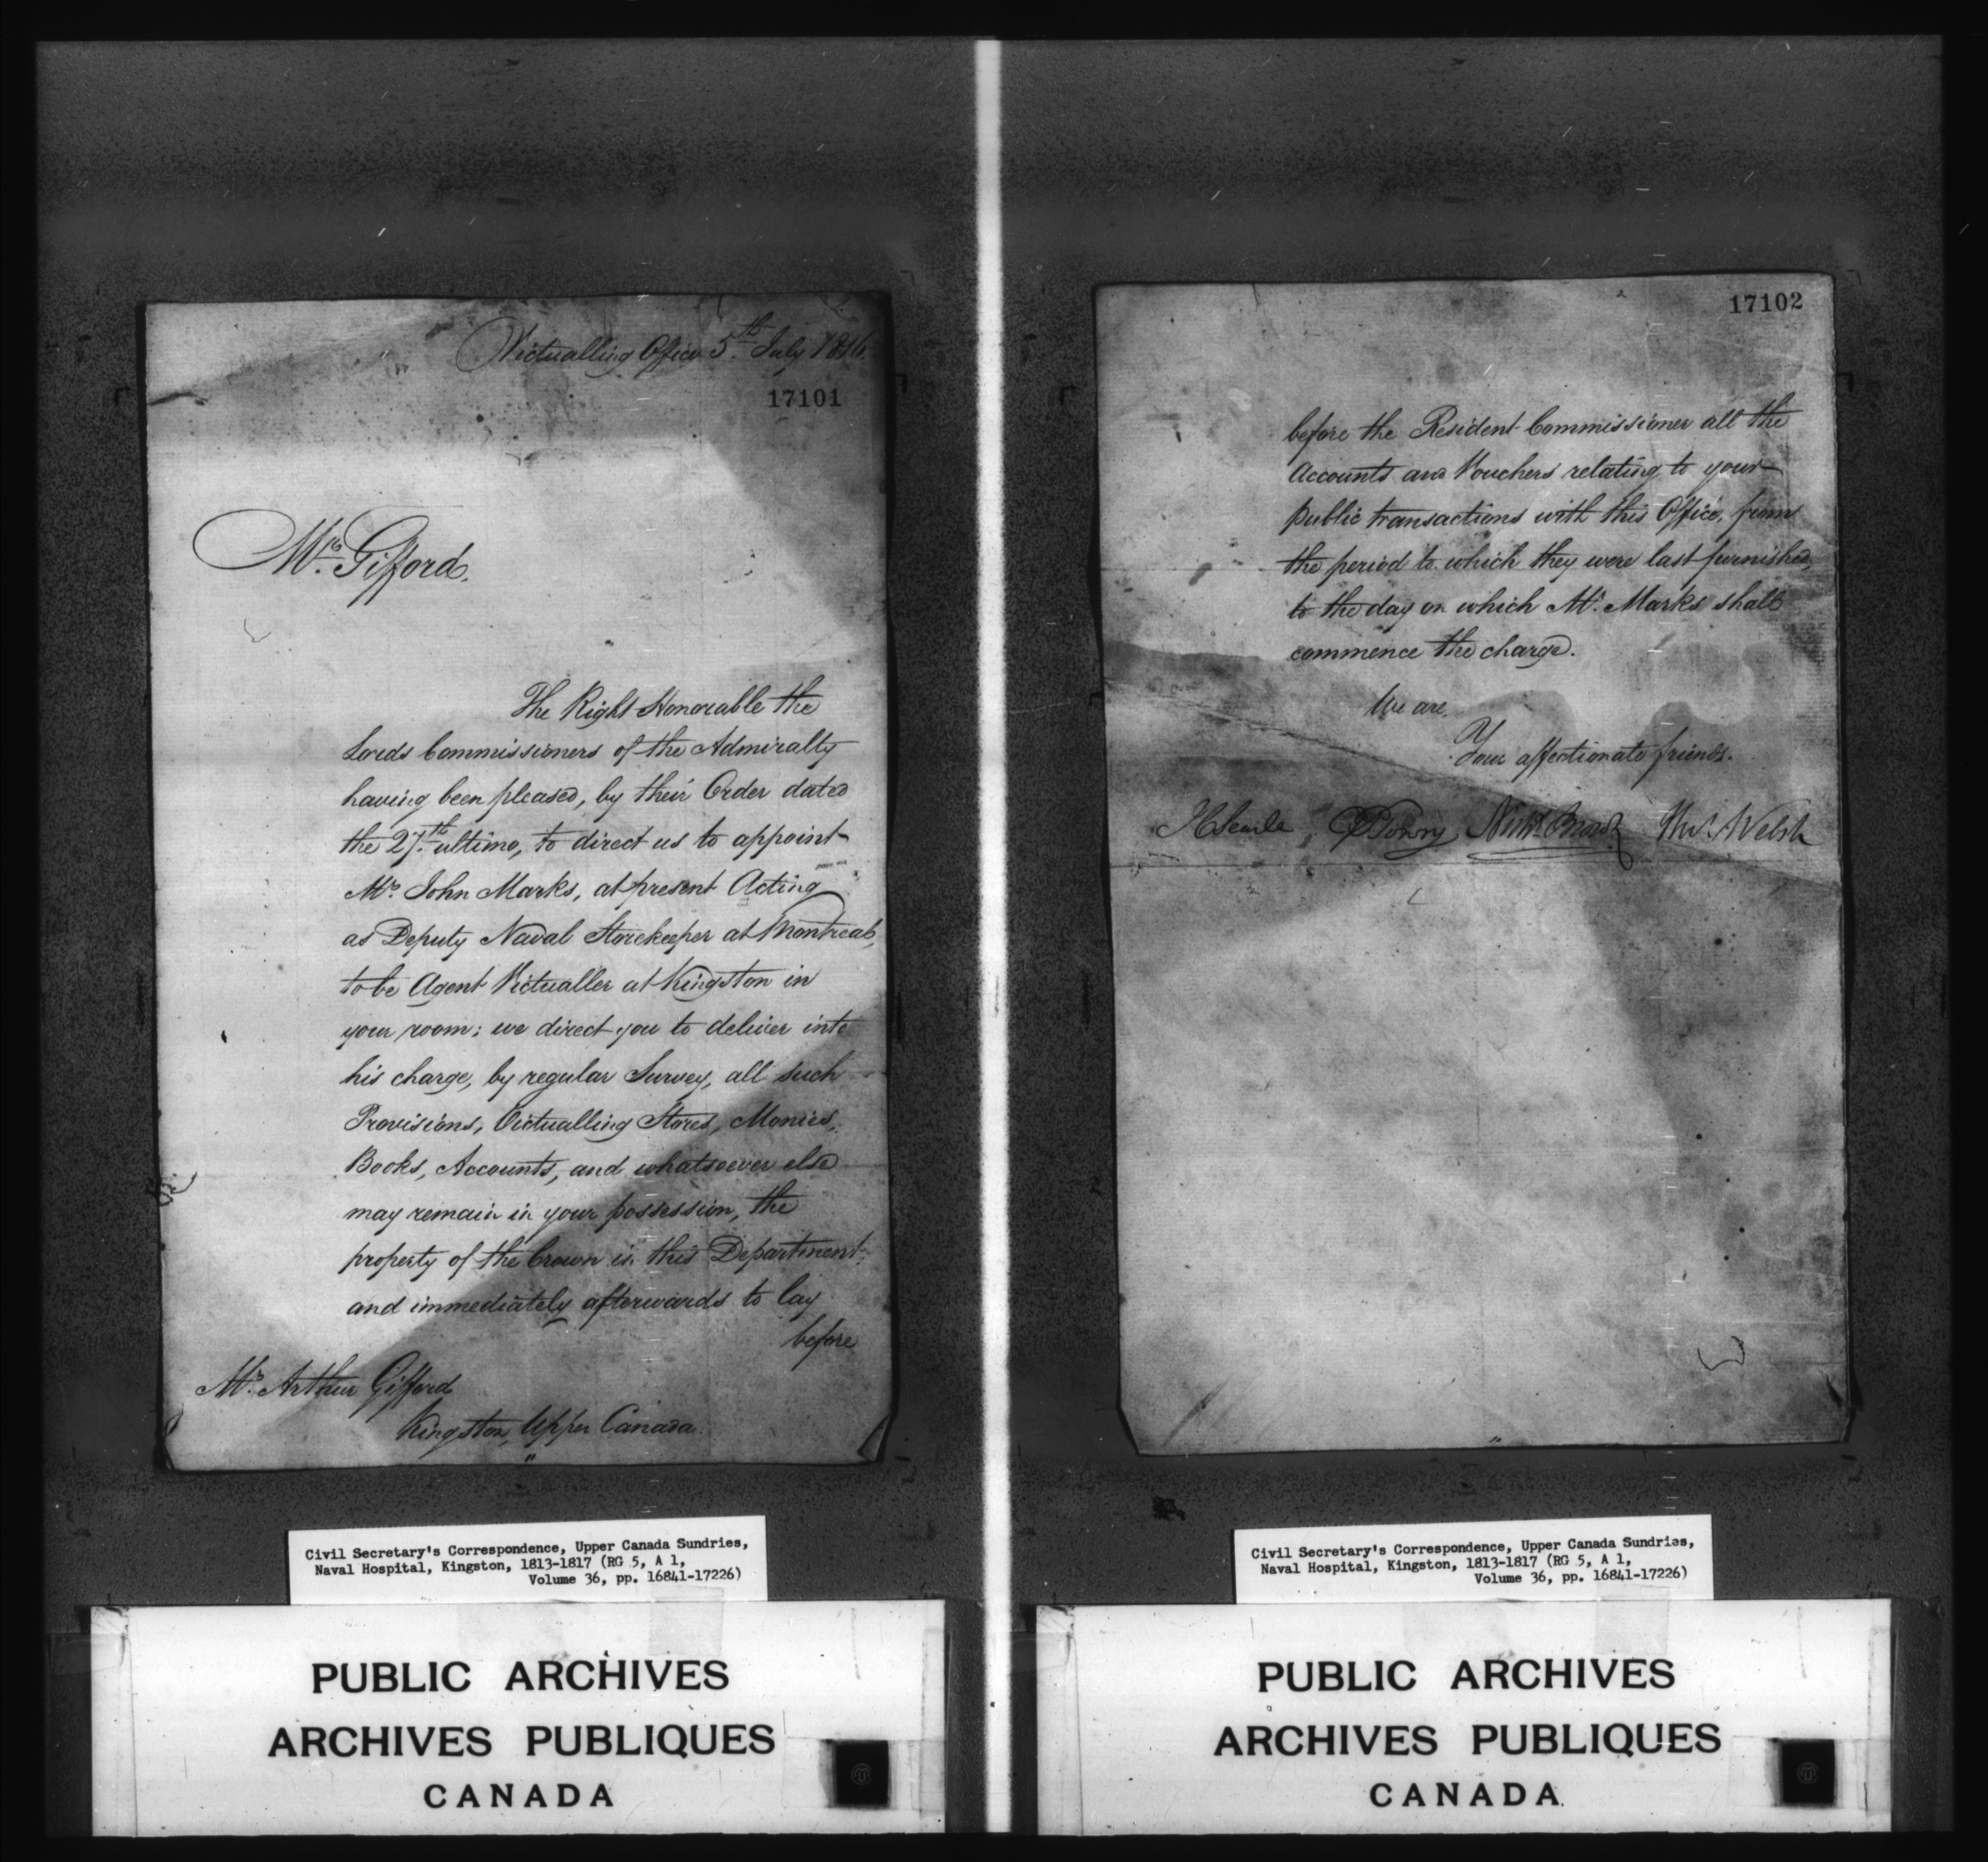 Victualling Office 5th July 1816.
17101
Mr. Gifford,
The Right Honorable the
Lords Commissioners of the Admiralty
having been pleased, by their Order dated
the 27th ultimo, to direct us to appoint
Mr. John Marks, at present Acting
as Deputy Naval Storekeeper at Montreal,
to be Agent Victualler at Kingston in
your room; we direct you to deliver into
his charge, by regular Survey, all such
Provisions, Victualling Stores, Monies,
Books, Accounts, and whatsoever else
may remain in your possession, the
property of the Crown in this Department;
and immediately afterwards to lay
before
Mr. Arthur Gifford
Kingston, Upper Canada
Civil Secretary's Correspondence, Upper Canada Sundries,
Naval Hospital, Kingston, 1813-1817 (RG 5, A 1,
Volume 36, pp. 16841-17226)
PUBLIC ARCHIVES
ARCHIVES PUBLIQUES
CANADA
17102
before the Resident Commissioner all the
Accounts and Vouchers relating to your
public transactions with this Office, from
the period to which they were last furnished,
to the day on which Mr. Marks shall
commence the charge.
We are,
Your affectionate friends.
JC Searle Nichs. Brown Thos. Welsh
Civil Secretary's Correspondence, Upper Canada Sundries,
Naval Hospital, Kingston, 1813-1817 (RG 5, A 1,
Volume 36, pp. 16841-17226)
PUBLIC ARCHIVES
ARCHIVES PUBLIQUES
CANADA